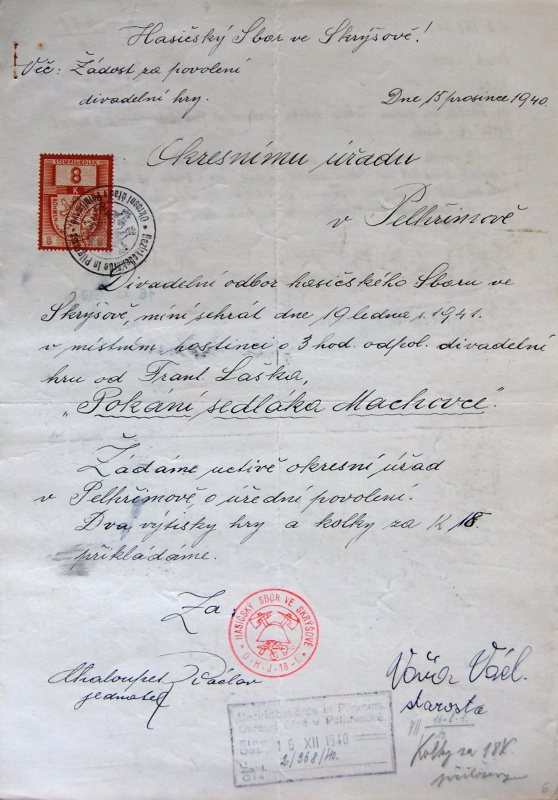 Hasičský Sbor ve Skrýšově!
Věc: Žádost za povolení
divadelní hry.
Dne 15 prosince 1940
STEMPEL-KOLEK
8
K
Okresnímu úřadu
v Pelhřimově
Divadelní odbor hasičského Sboru ve
Skrýšově, míní sehrát dne 19 ledna r. 1941.
v místním hostinci o 3 hod. odpol. divadelní
hru od Frant. Laška,
"Pokání sedláka Machovce".
Žádáme uctivě okresní úřad
v Pelhřimově o úřední povolení.
Dva výtisky hry a kolky za K 18.
přikládáme.
Za
HASIČSKÝ SBOR VE SKRÝŠOVĚ
Č.H.J.-18-I.
Chaloupek Václav
jednatel
Váňa Václ.
starosta
Bezirksbehörde in Pilgrams
Okresní úřad v Pelhřimově
16 XII 1940
2/968/40.
Kolky za 18K
přiloženy